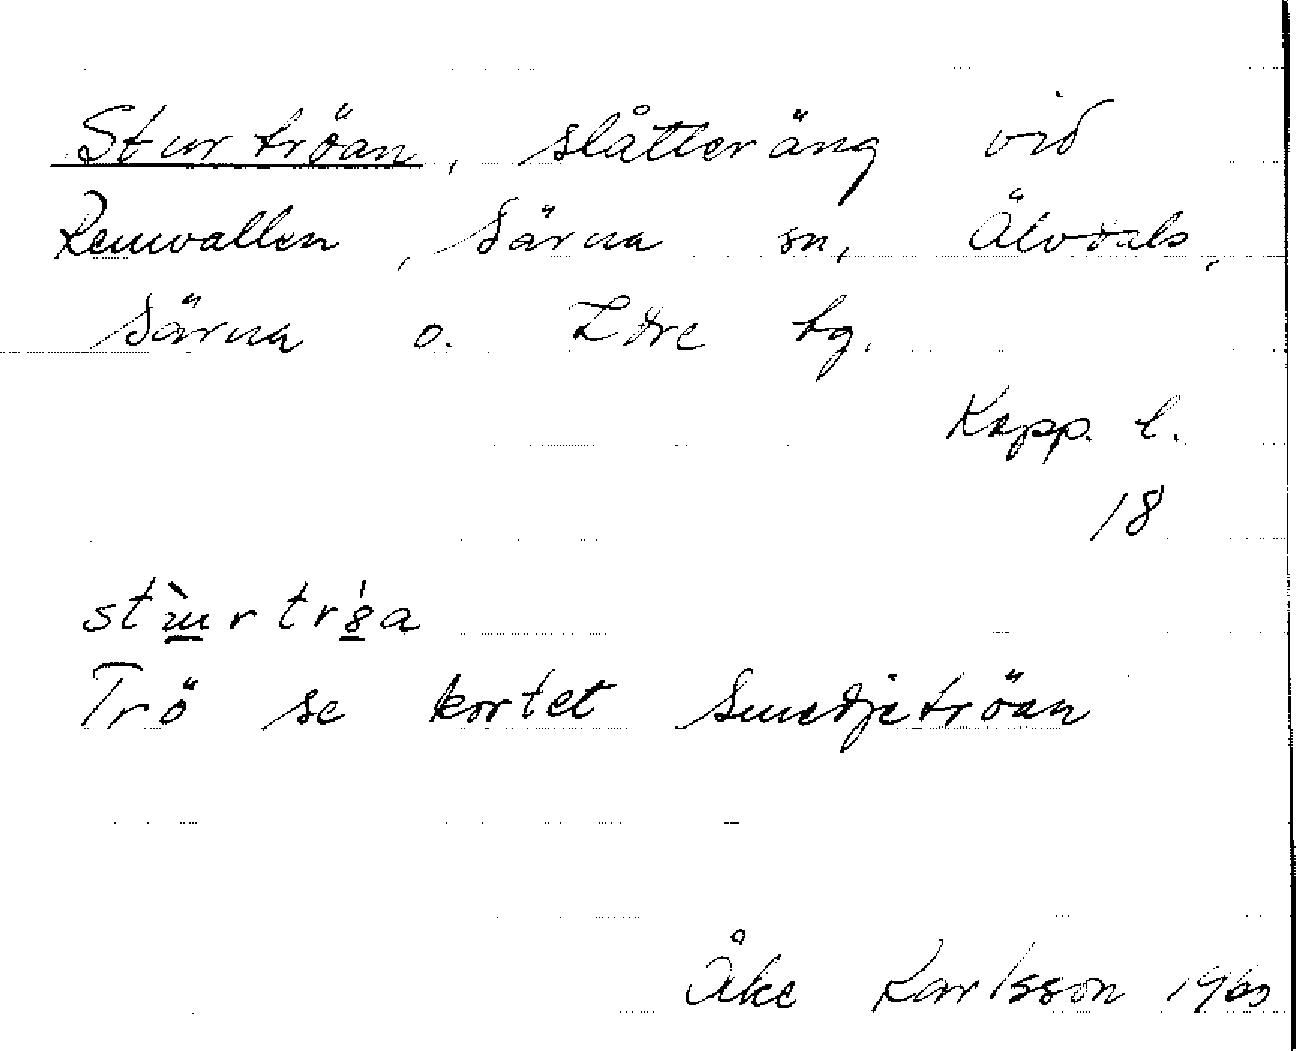 Sturtröan, slåtteräng vid
Remvallen, Särna sn, Älvdals,
Särna o. Idre tg.
Kopp. l.
18
Trö se kortet Smedjetröan
Åke Karlsson 1960